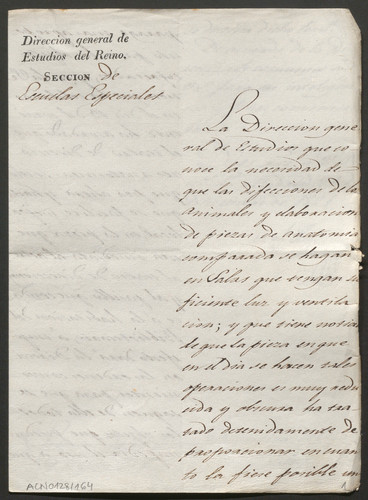 Direccion general de
Estudios del Reino.
SECCION de
Escuelas Especiales
La Direccion gene
ral de Estudios que co
noce la necesidad de
que las disecciones de los
animales y elaboracion
de piezas de anatomia
comparada se hagan
en Salas que tengan su
ficiente luz y ventila
cion; y que tiene noticia
de que la pieza en que
en el dia se hacen tales
operaciones es muy redu
cida y obscura ha tra
tado detenidamente de
proporcionar en cuan
to la fuere posible un
ACN0128/164
1